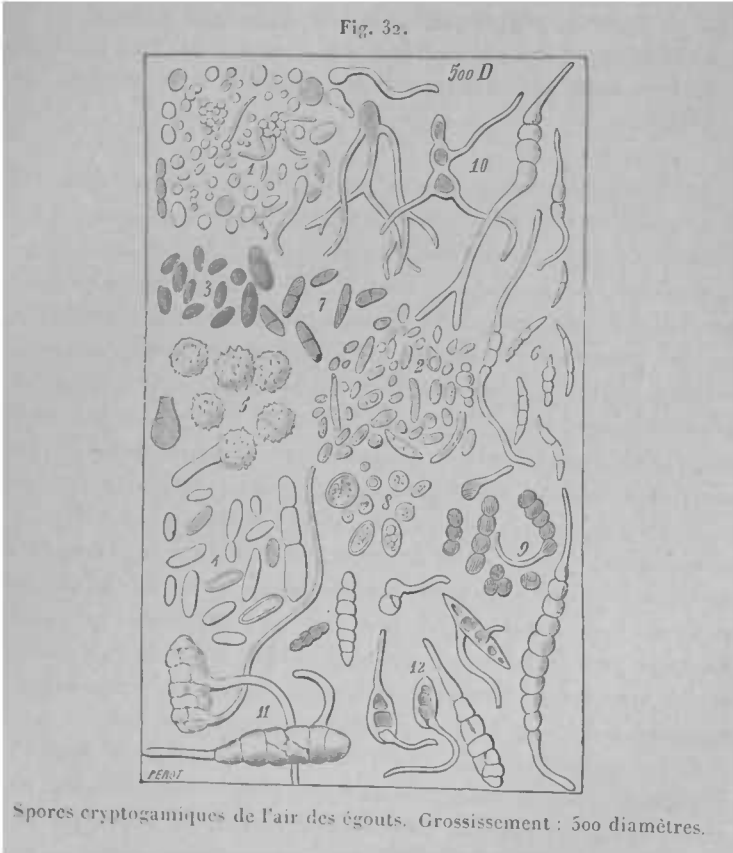 Fig. 32.
500 D
10
1
3
7
2
6
5
8
9
4
12
11
PEROT
Spores cryptogamiques de l'air des égouts. Grossissement : 500 diamètres.